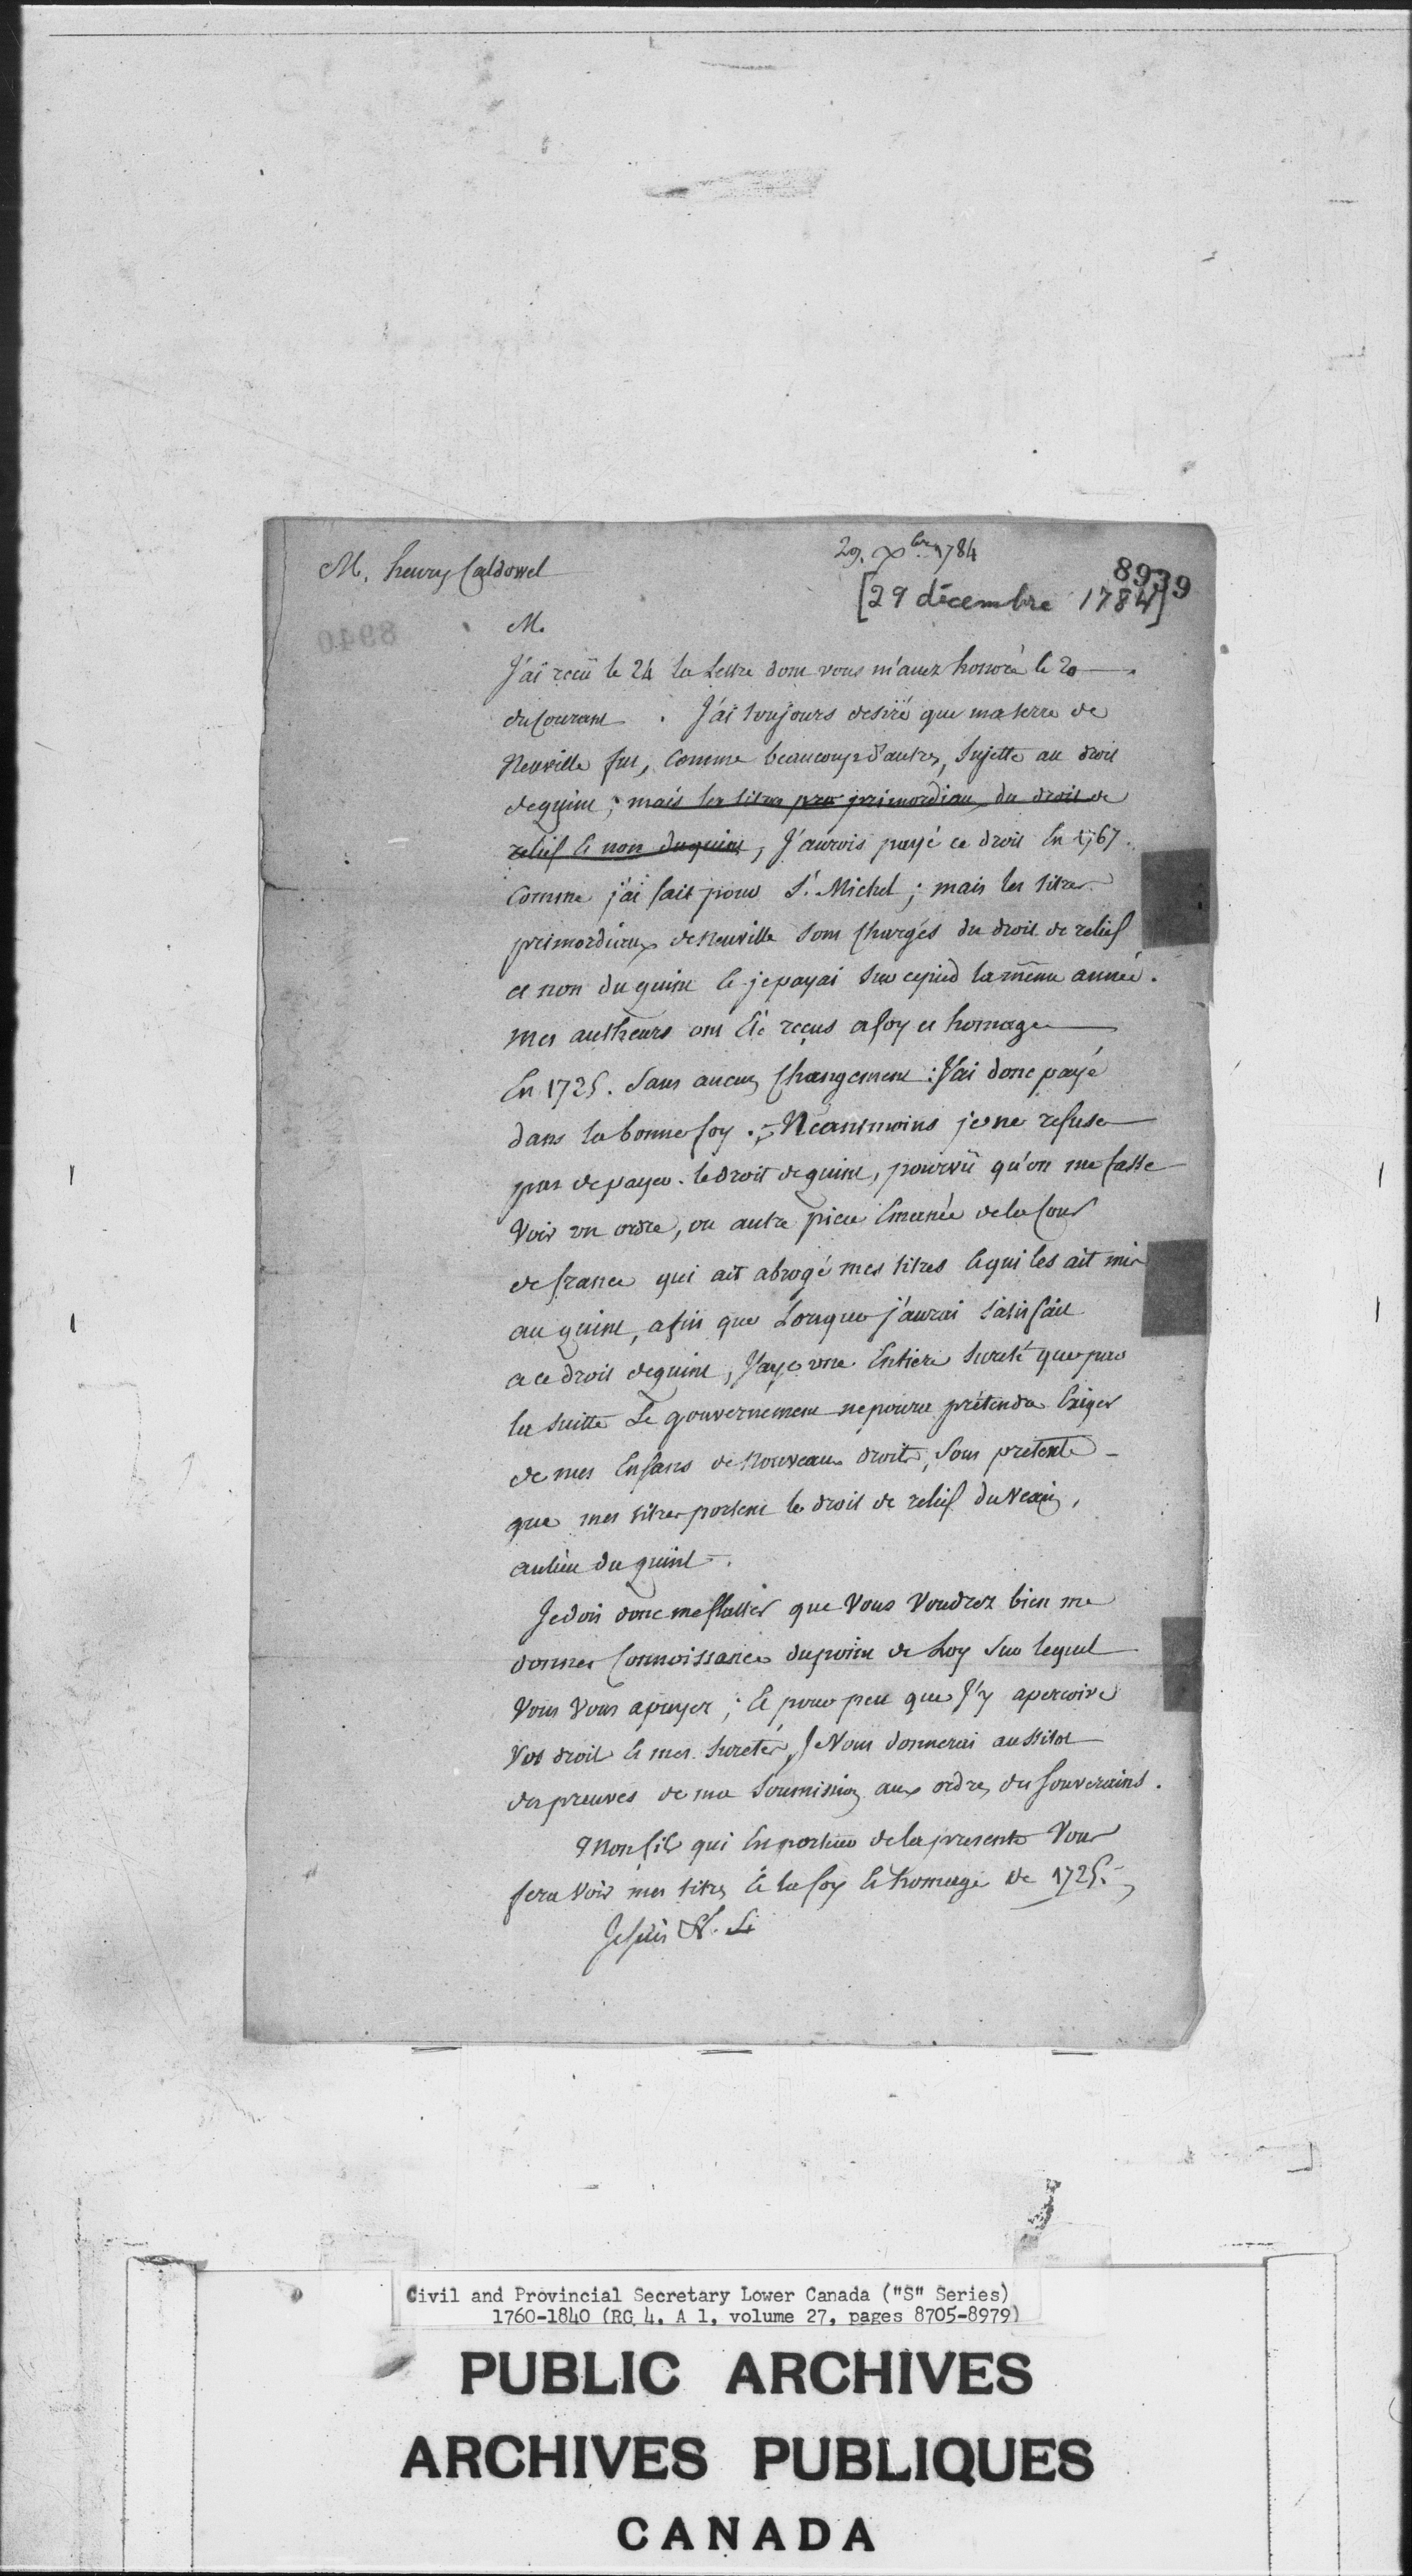 29. Xbre 1784
M. henry Caldowel
8939
[29 décembre 1784]
8940
M.
J'ai reçû le 24 la Lettre dont vous m'avez honoré le 20
du Courant. J'ai toujours desiré que ma terre de
Neuville fut, comme beaucoup d'autres, Sujette au droit
de quint; mais les titres pro primordiaux du droit de
relief & non du quint, J'aurois payé ce droit En 1767.
Comme j'ai fait pour St. Michel; mais les titres
primordiaux de Neuville Sont Chargés du droit de relief
et non du quint & je payai Sur ce pied la même année.
Mes autheurs ont Eté reçus a foy et homage
En 1725. Sans aucun Changement: J'ai donc payé
dans la bonne foy. Neantmoins je ne refuse
pas de payer le droit de quint, pourvû qu'on me fasse
Voir un ordre, ou autre piece Emanée de la Cour
de france qui ait abrogé mes titres & qui les ait mis
au quint, afin que Lorsque j'aurai Satisfait
a ce droit de quint, J'aye une Entiere Sureté que par
la Suitte Le gouvernement ne poura prétendre Exiger
de mes Enfans de Nouveaux droits, Sous pretexte
que mes titres portent le droit de relief du Vexin,
au lieu du quint.
Je dois donc me flatter que Vous Voudrez bien me
donner Connoissance du point de Loy Sur lequel
Vous Vous apuyez; & pour peu que J'y aperçoive
Vos droit & mes Suretés, Je Vous donnerai aussitot
des preuves de ma Soumission aux ordres du Souverains.
Mon fils qui Est porteur de la presente Vous
fera Voir mes titres & la foy & homage de 1725.
Je suis
Civil and Provincial Secretary Lower Canada ("S" Series)
1760-1840 (RG 4, A 1, volume 27, pages 8705-8979)
PUBLIC ARCHIVES
ARCHIVES PUBLIQUES
CANADA